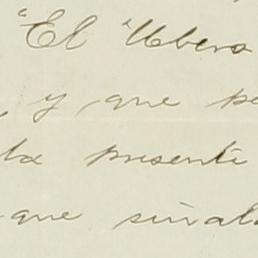 "El Ubero
y que pe
la presente
que señala